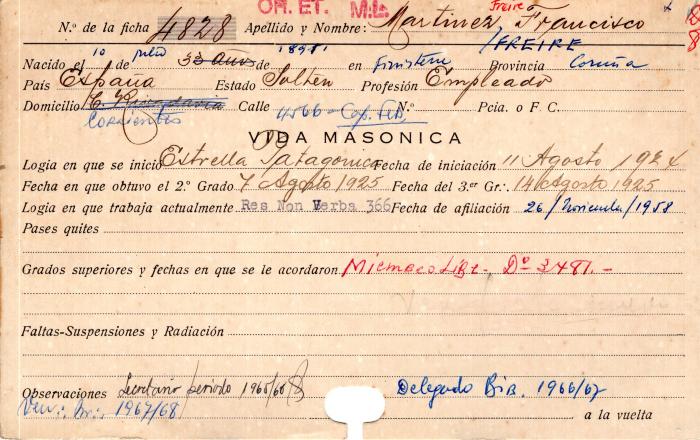 OR. ET. M.L. Freire
N.º de la ficha 4828 Apellido y Nombre: Martinez Francisco
/FREIRE
Nacido el 10 de julio 33 Años de en Finisterre Provincia Coruña
País España Estado Soltero Profesión Empleado
Domicilio C. Rivadavia Calle 4566 - Cap. Fed. N.º Pcia. o F. C.
Corrientes
VIDA MASONICA
Logia en que se inició Estrella Patagonica Fecha de iniciación 11 Agosto 1924
Fecha en que obtuvo el 2.º Grado 7 Agosto 1925 Fecha del 3.er Gr.: 14 Agosto 1925
Logia en que trabaja actualmente Res Non Verba 366 Fecha de afiliación 26/Noviembre/1958
Pases quites
Grados superiores y fechas en que se le acordaron Miembro Lib:- D.º 3481.-
Faltas-Suspensiones y Radiación
Observaciones Secretario periodo 1965/66 Delegado Bib. 1966/67
Ven:. 1967/68 a la vuelta